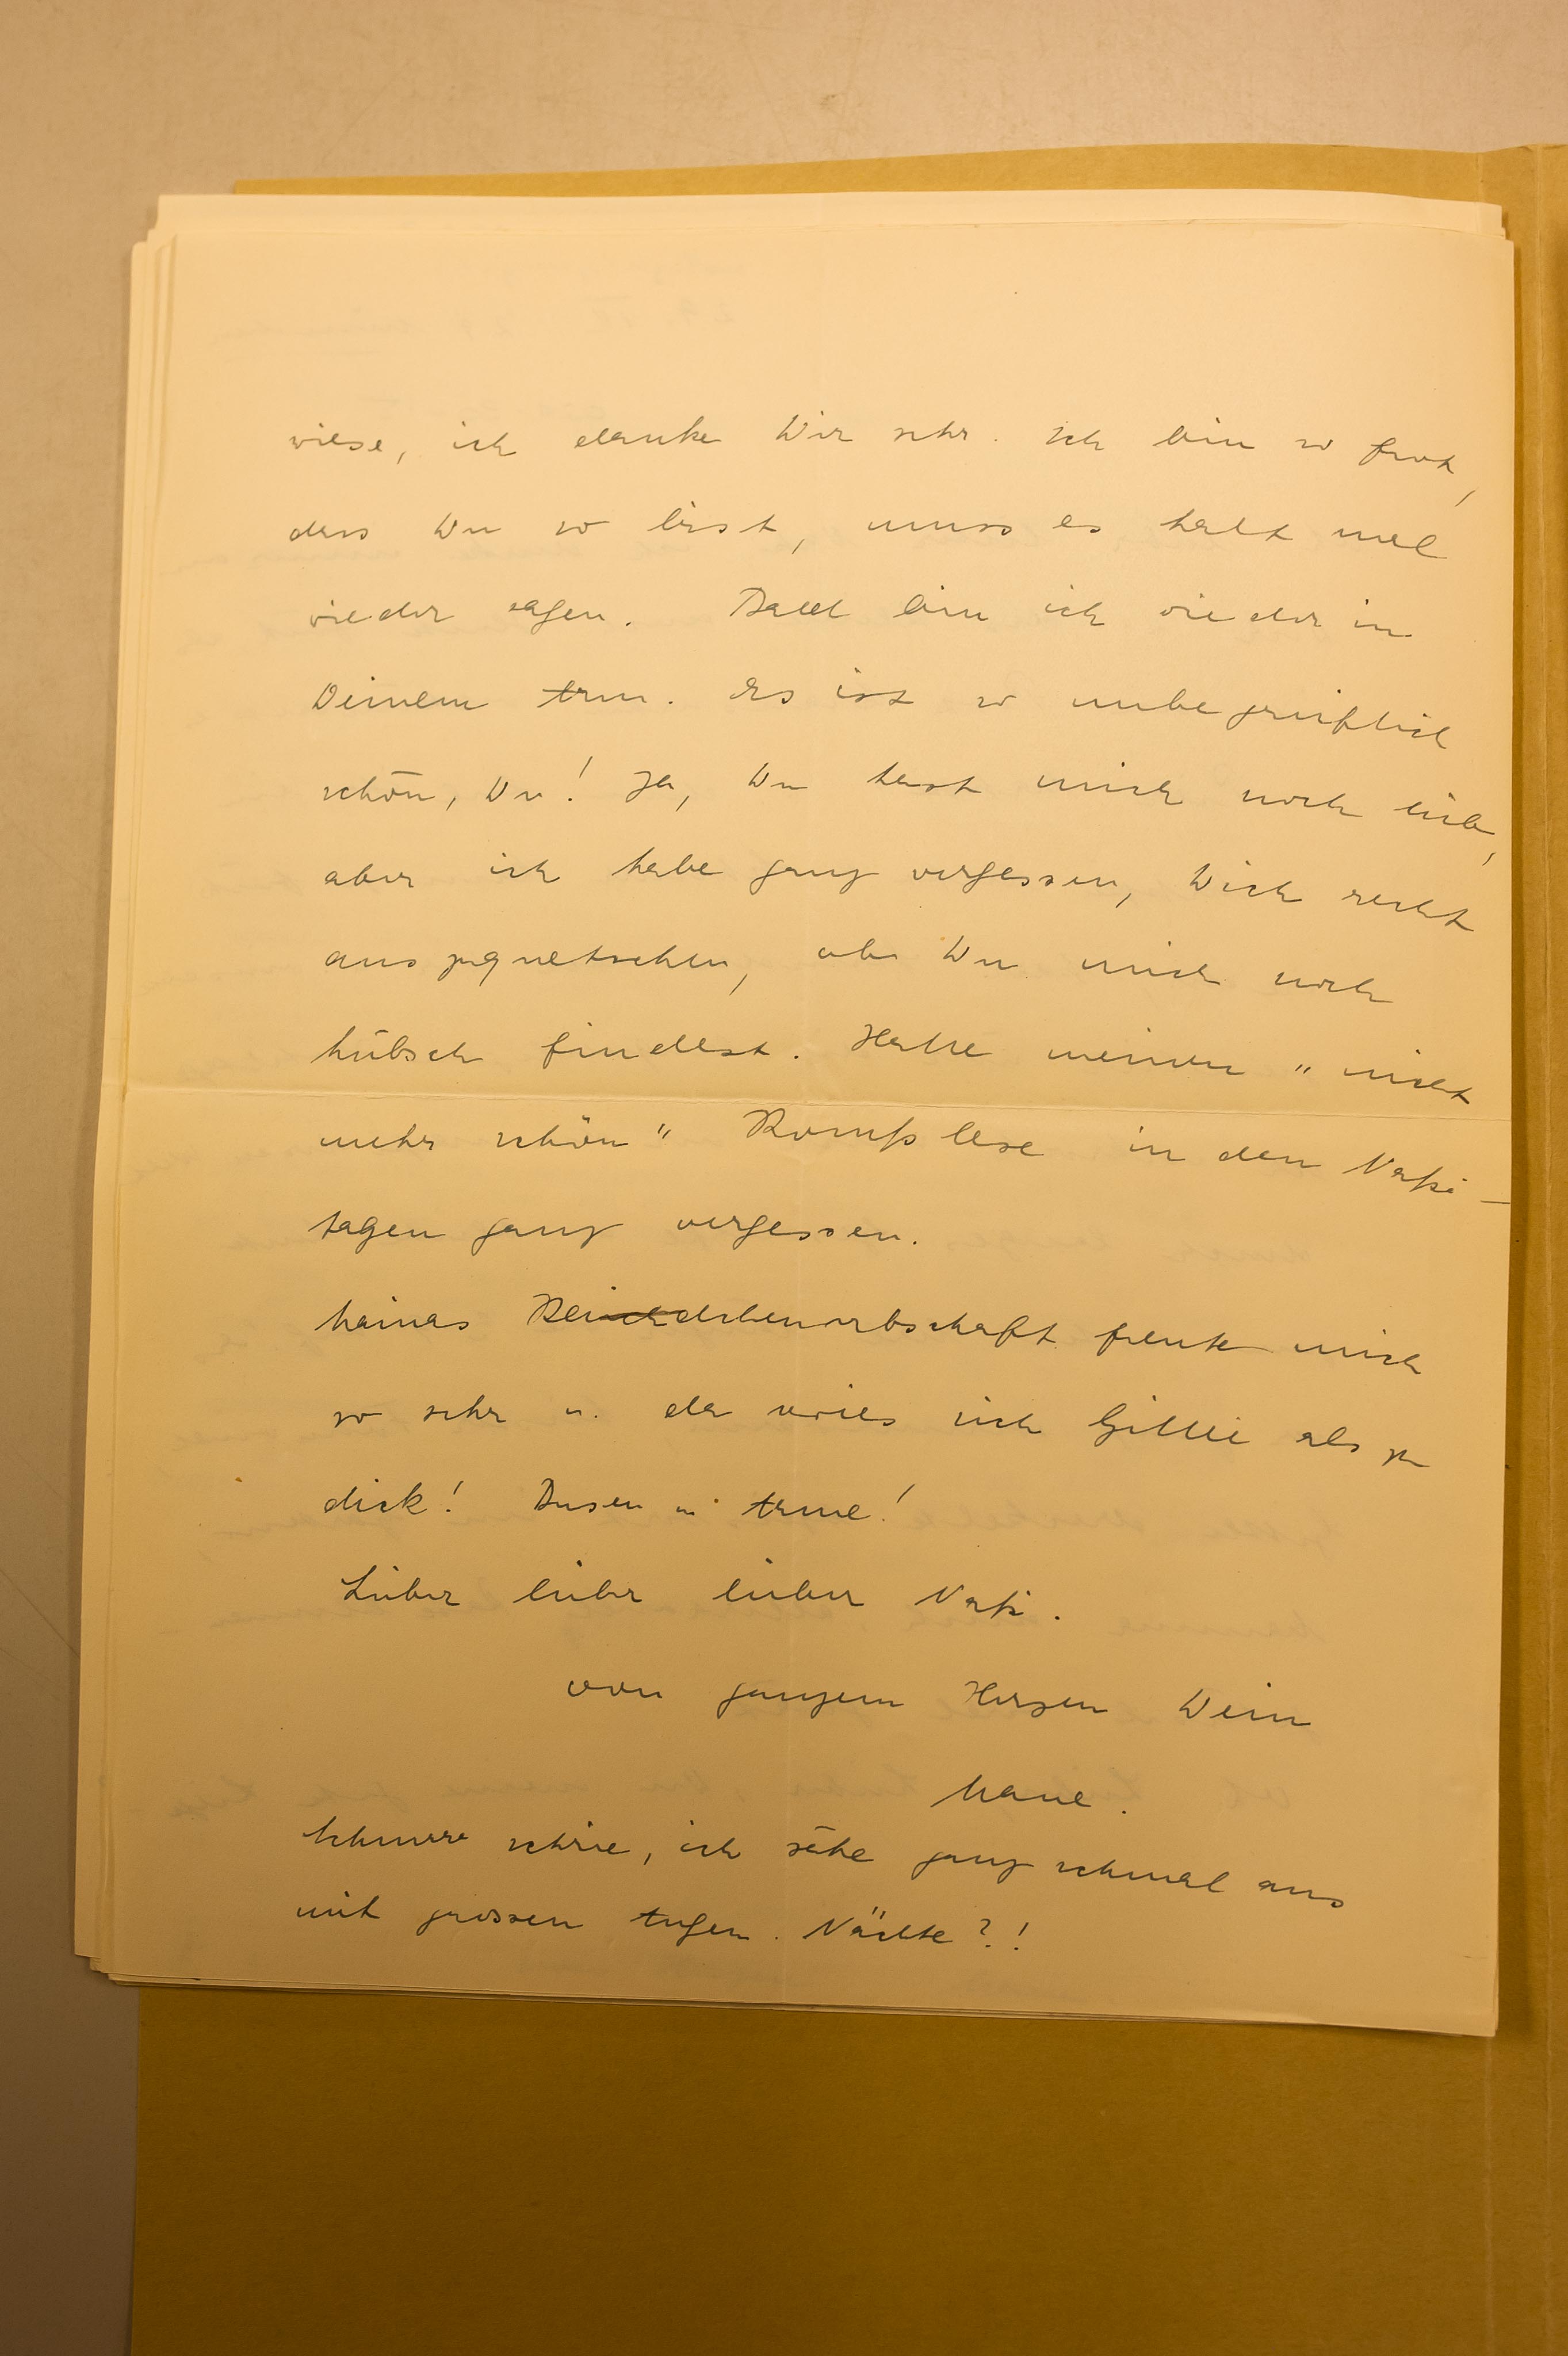 wiese, ich danke Dir sehr. Ich bin so froh,
dass Du so bist, muss es halt mal
wieder sagen. Bald bin ich wieder in
Deinem Arm. Es ist so unbegreiflich
schön, Du! Ja, Du hast mich noch lieb,
aber ich habe ganz vergessen, Dich recht
auszuquetschen, ob Du mich noch
hübsch findest. Hatte meinen "nicht
mehr schön" Komplexe in den
tagen ganz vergessen.
freute mich
so sehr u. da wies sich als zu
dick! Busen u. Arme!
Lieber lieber lieber
von ganzem Herzen Dein
schrie, ich sähe ganz schmal aus
mit grossen Augen. Nächte?!